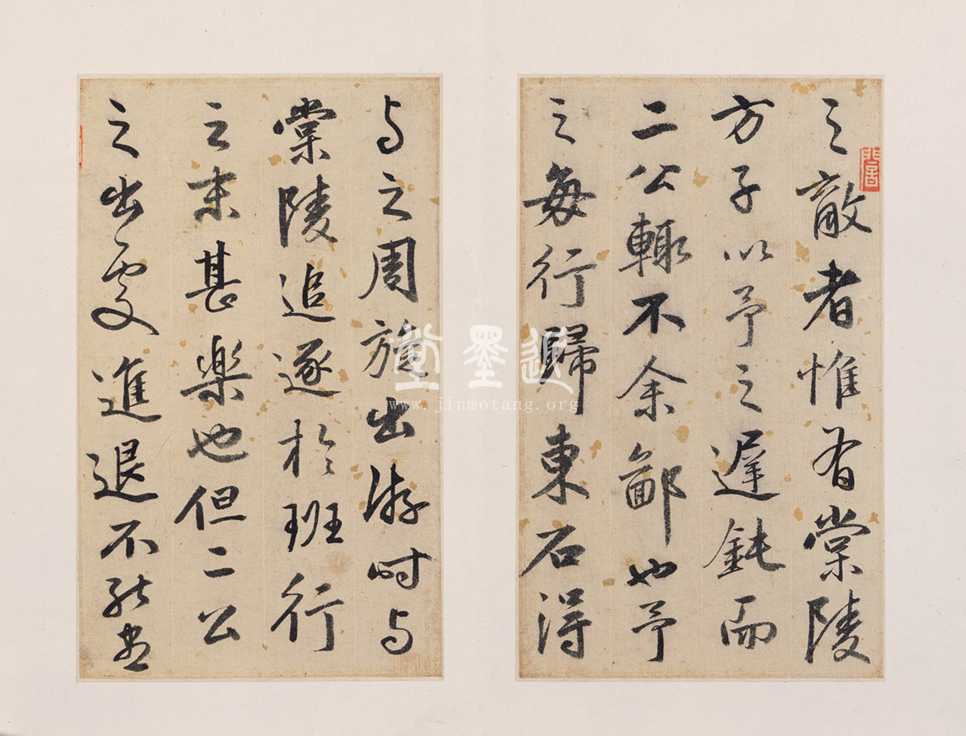 之敵者惟有棠陵
方子以予之遲鈍而
二公輒不余鄙也予
之每行歸東石得
与之周旋出游時与
棠陵追逐於班行
之末甚樂也但二公
之出處進退不能盡
進墨堂
www.jinmotang.org